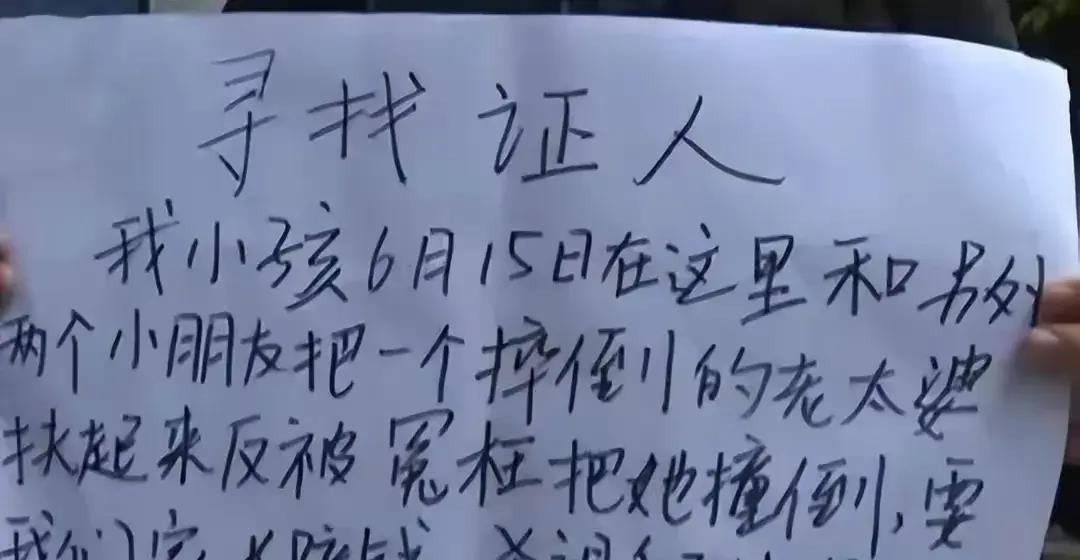 寻找证人
我小孩6月15日在这里和另外
两个小朋友把一个摔倒的老太婆
扶起来反被冤枉把她撞倒,要
我们家长赔钱